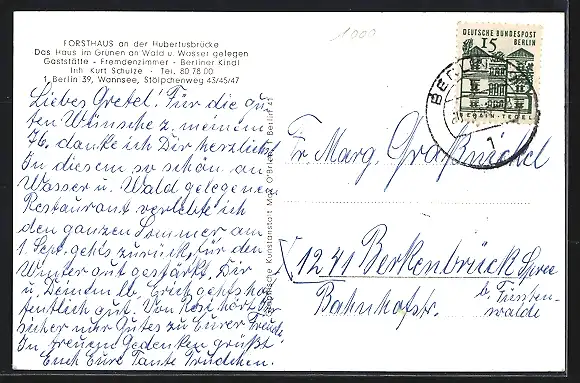 1000
FORSTHAUS an der Hubertusbrücke
Das Haus im Grünen an Wald u. Wasser gelegen
Gaststätte - Fremdenzimmer - Berliner Kindl
Inh. Kurt Schulze - Tel. 80 78 00
1 Berlin 39, Wannsee, Stölpchenweg 43/45/47
Liebes Gretel! Für die gu-
ten Wünsche z. meinem
76. danke ich Dir herzlichst
In diesem so schön an
Wasser u. Wald gelegenen
Restaurant verlebte ich
den ganzen Sommer am
1. Sept. gehts zurück, für den
Winter gut gestärkt. Dir
u. Deinem lb. Erich gehts hof-
fentlich gut. Von Rose hörz Ihr
sicher nur Gutes zu Eurer Freude
In treuem Gedenken grüßt
Euch Eure Tante Trudchen.
Graphische Kunstanstalt Max O'Brien, Berlin 41
DEUTSCHE BUNDESPOST
15 BERLIN
TEGEL
BERLIN
1
Fr. Marg. Graßnickel
1241 Berkenbrück Spree
b. Fürsten-
walde
Bahnhofstr.